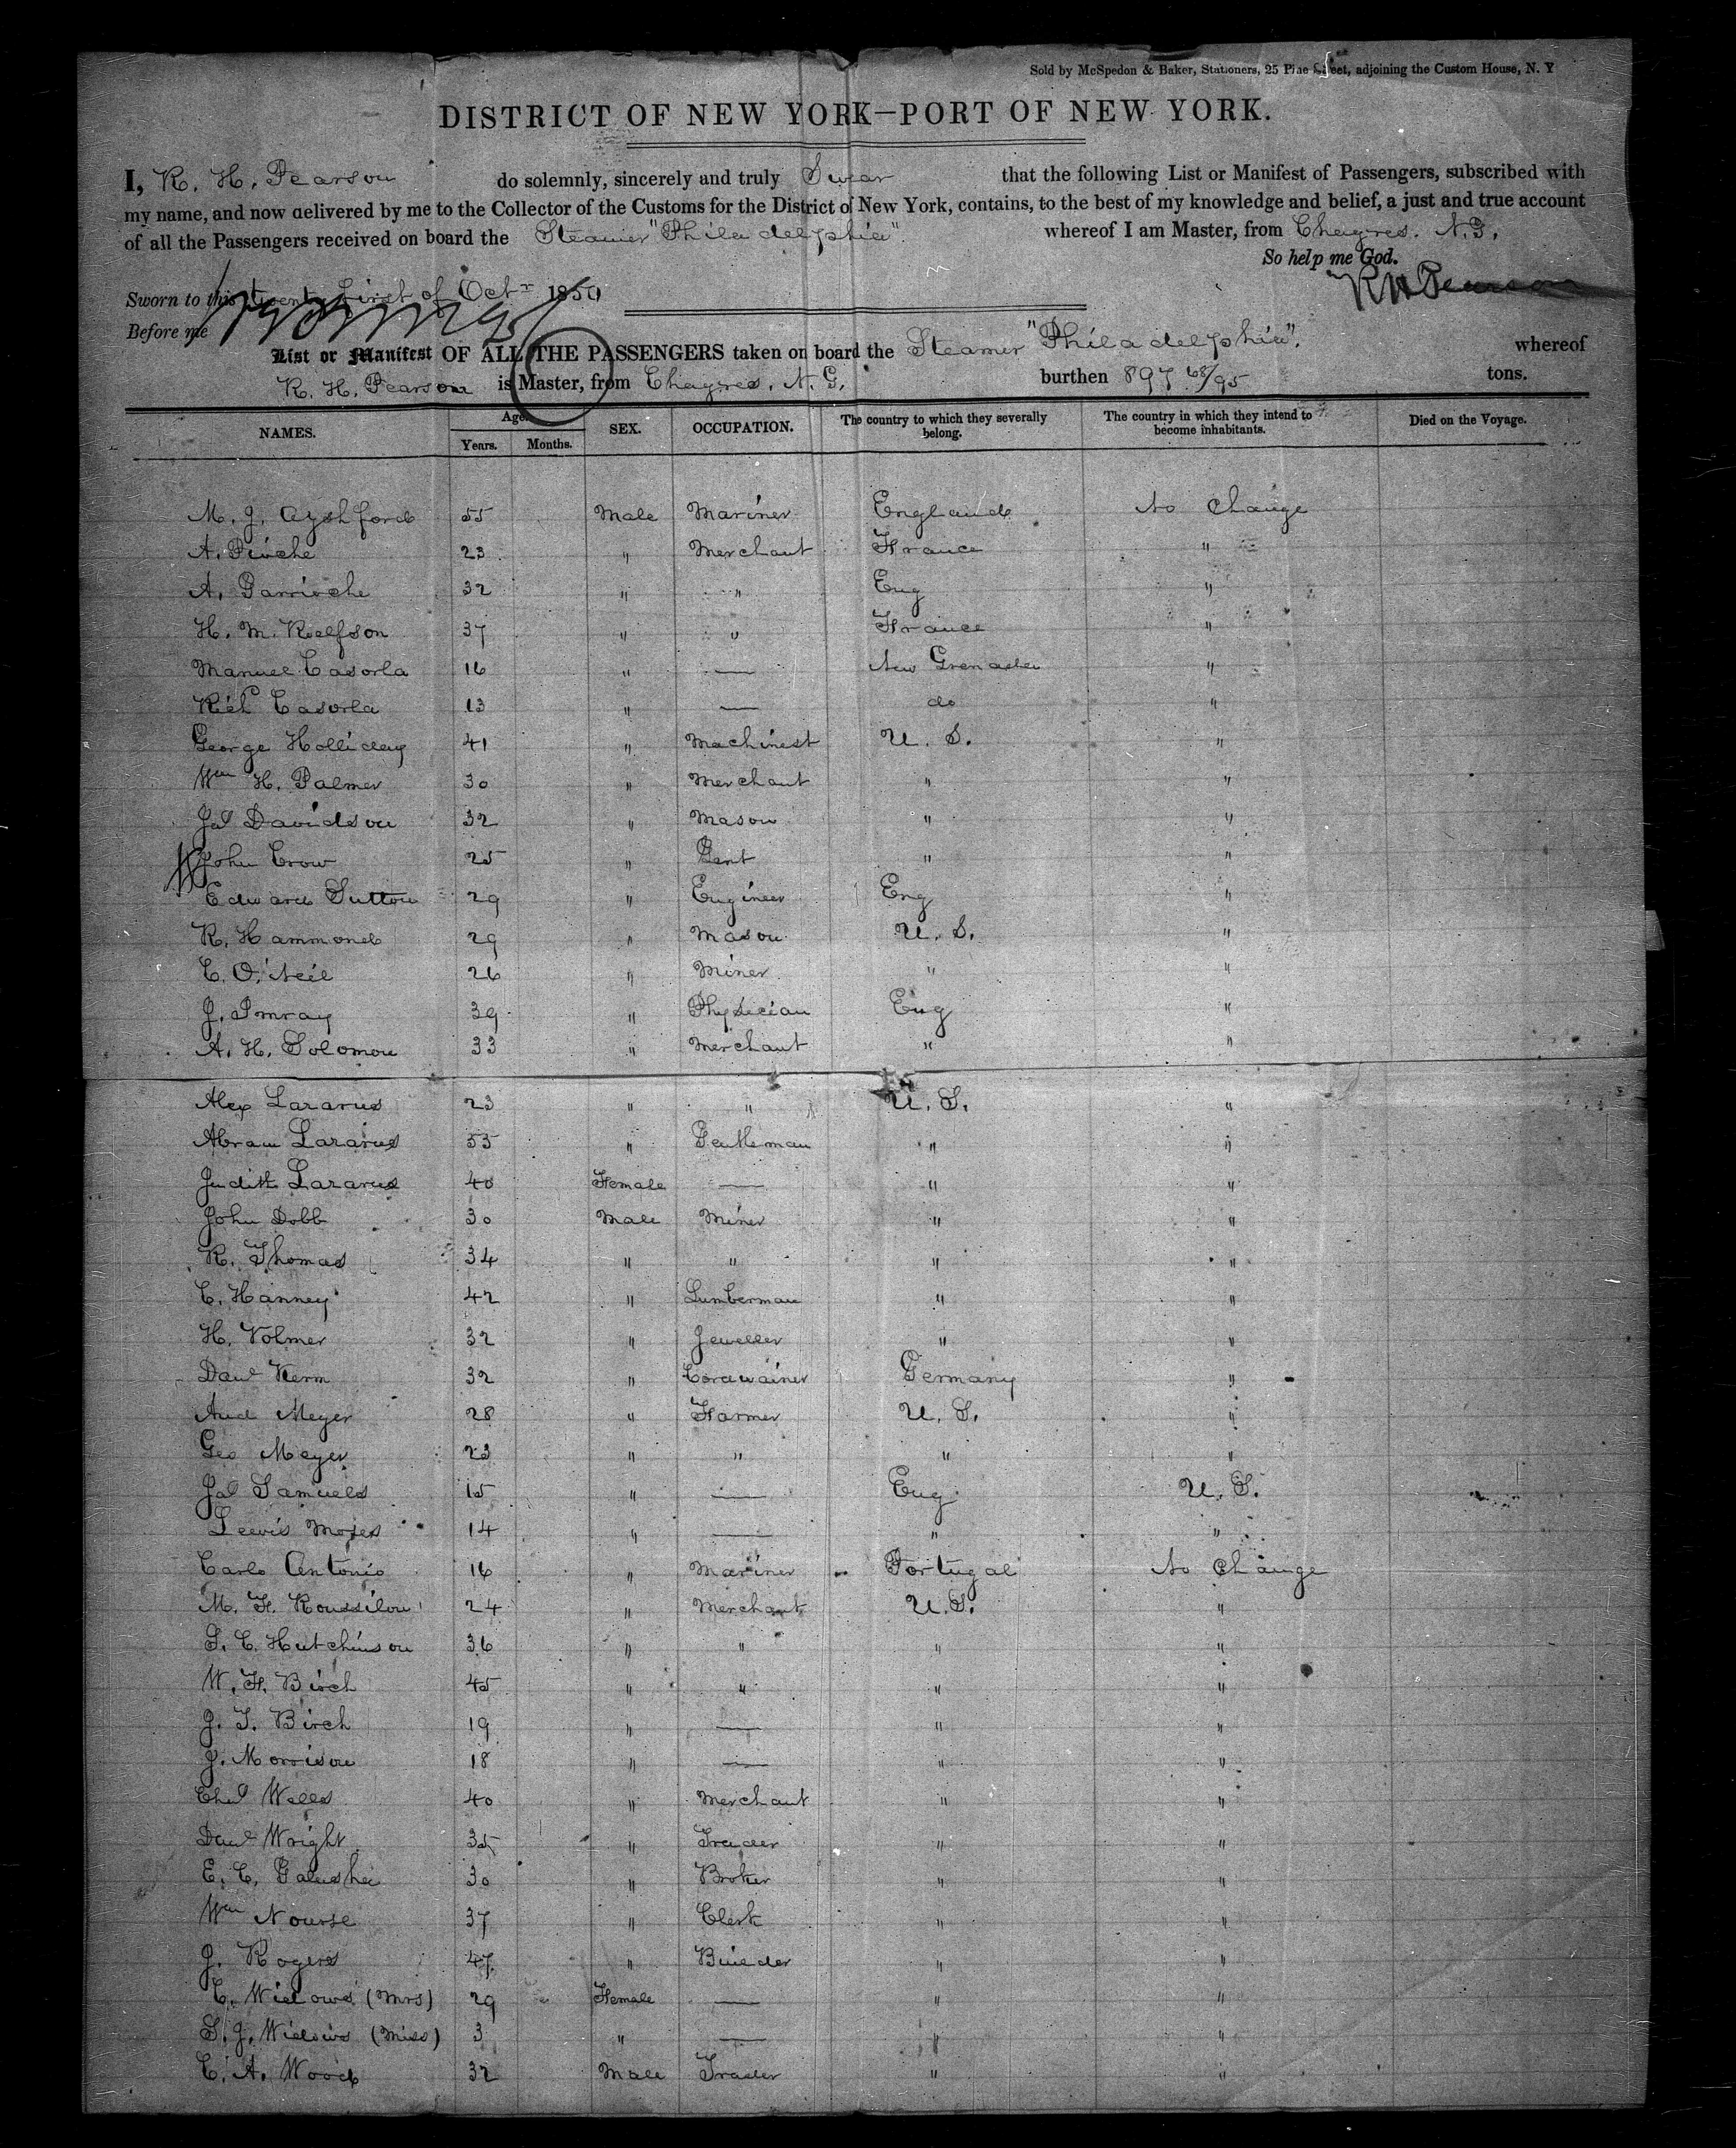 Sold by McSpedon & Baker, Stationers, 25 Pine Street, adjoining the Custom House, N. Y
DISTRICT OF NEW YORK—PORT OF NEW YORK.
I, R. H. Pearson do solemnly, sincerely and truly Swear that the following List or Manifest of Passengers, subscribed with
my name, and now delivered by me to the Collector of the Customs for the District of New York, contains, to the best of my knowledge and belief, a just and true account
of all the Passengers received on board the Steamer "Philadelphia". whereof I am Master, from Chagres. N. G.
So help me God.
Sworn to this twenty first of Octr 1850 R H Pearson
Before me
List or Manifest OF ALL THE PASSENGERS taken on board the Steamer "Philadelphia". whereof
R. H. Pearson is Master, from Chagres, N. G. burthen 897 68/95 tons.
NAMES. Age. SEX. OCCUPATION. The country to which they severally belong. The country in which they intend to become inhabitants. Died on the Voyage.
Years. Months.
M. J. Ayshford 55 Male Mariner England No Change
A. Pioche 23 " Merchant France "
A. Garrioche 32 " " Eng "
H. M. 37 " " France "
Manuel Casorla 16 " — New Grenada "
Richd Casorla 13 " — do "
George Holliday 41 " Machinest U. S. "
Wm H. Palmer 30 " Merchant " "
Jas Davidson 32 " Mason " "
John Crow 25 " Gent " "
Edward Sutton 29 " Engineer Eng "
R. Hammond 29 " Mason U. S. "
C. O'Neil 26 " Miner " "
J. Pomray 39 " Physician Eng "
A. H. Solomon 33 " Merchant " "
Alex Lazarus 23 " " U. S. "
Abram Lazarus 55 " Gentleman " "
Judith Lazarus 40 Female — " "
John Dobb 30 Male Miner " "
R. Thomas 34 " " " "
C. Hanney 42 " Lumberman " "
H. Volmer 32 " Jeweller " "
Danl Kerm 32 " Cordwainer Germany "
And Meyer 28 " Farmer U. S. "
Geo Meyer 23 " " " "
Jas Samuels 15 " — Eng U. S.
Lewis Moses 14 " — " "
Carlo Antonio 16 " Mariner Portugal No Change
M. F. Roussilou 24 " Merchant U. S. "
S. C. Hutchinson 36 " " " "
W. F. Birch 45 " " " "
J. T. Birch 19 " — " "
J. Morrison 18 " — " "
Chas Wells 40 " Merchant " "
Danl Wright 35 " Trader " "
E. C. Galusha 30 " Broker " "
Wm Nourse 37 " Clerk " "
J. Rogers 47 " Builder " "
C. Widows (Mrs) 29 Female — " "
S. J. Widows (Miss) 3 " — " "
C. A. Wood 32 Male Trader " "